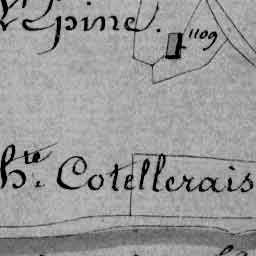 Epine.
1109
hte. Cotellerais